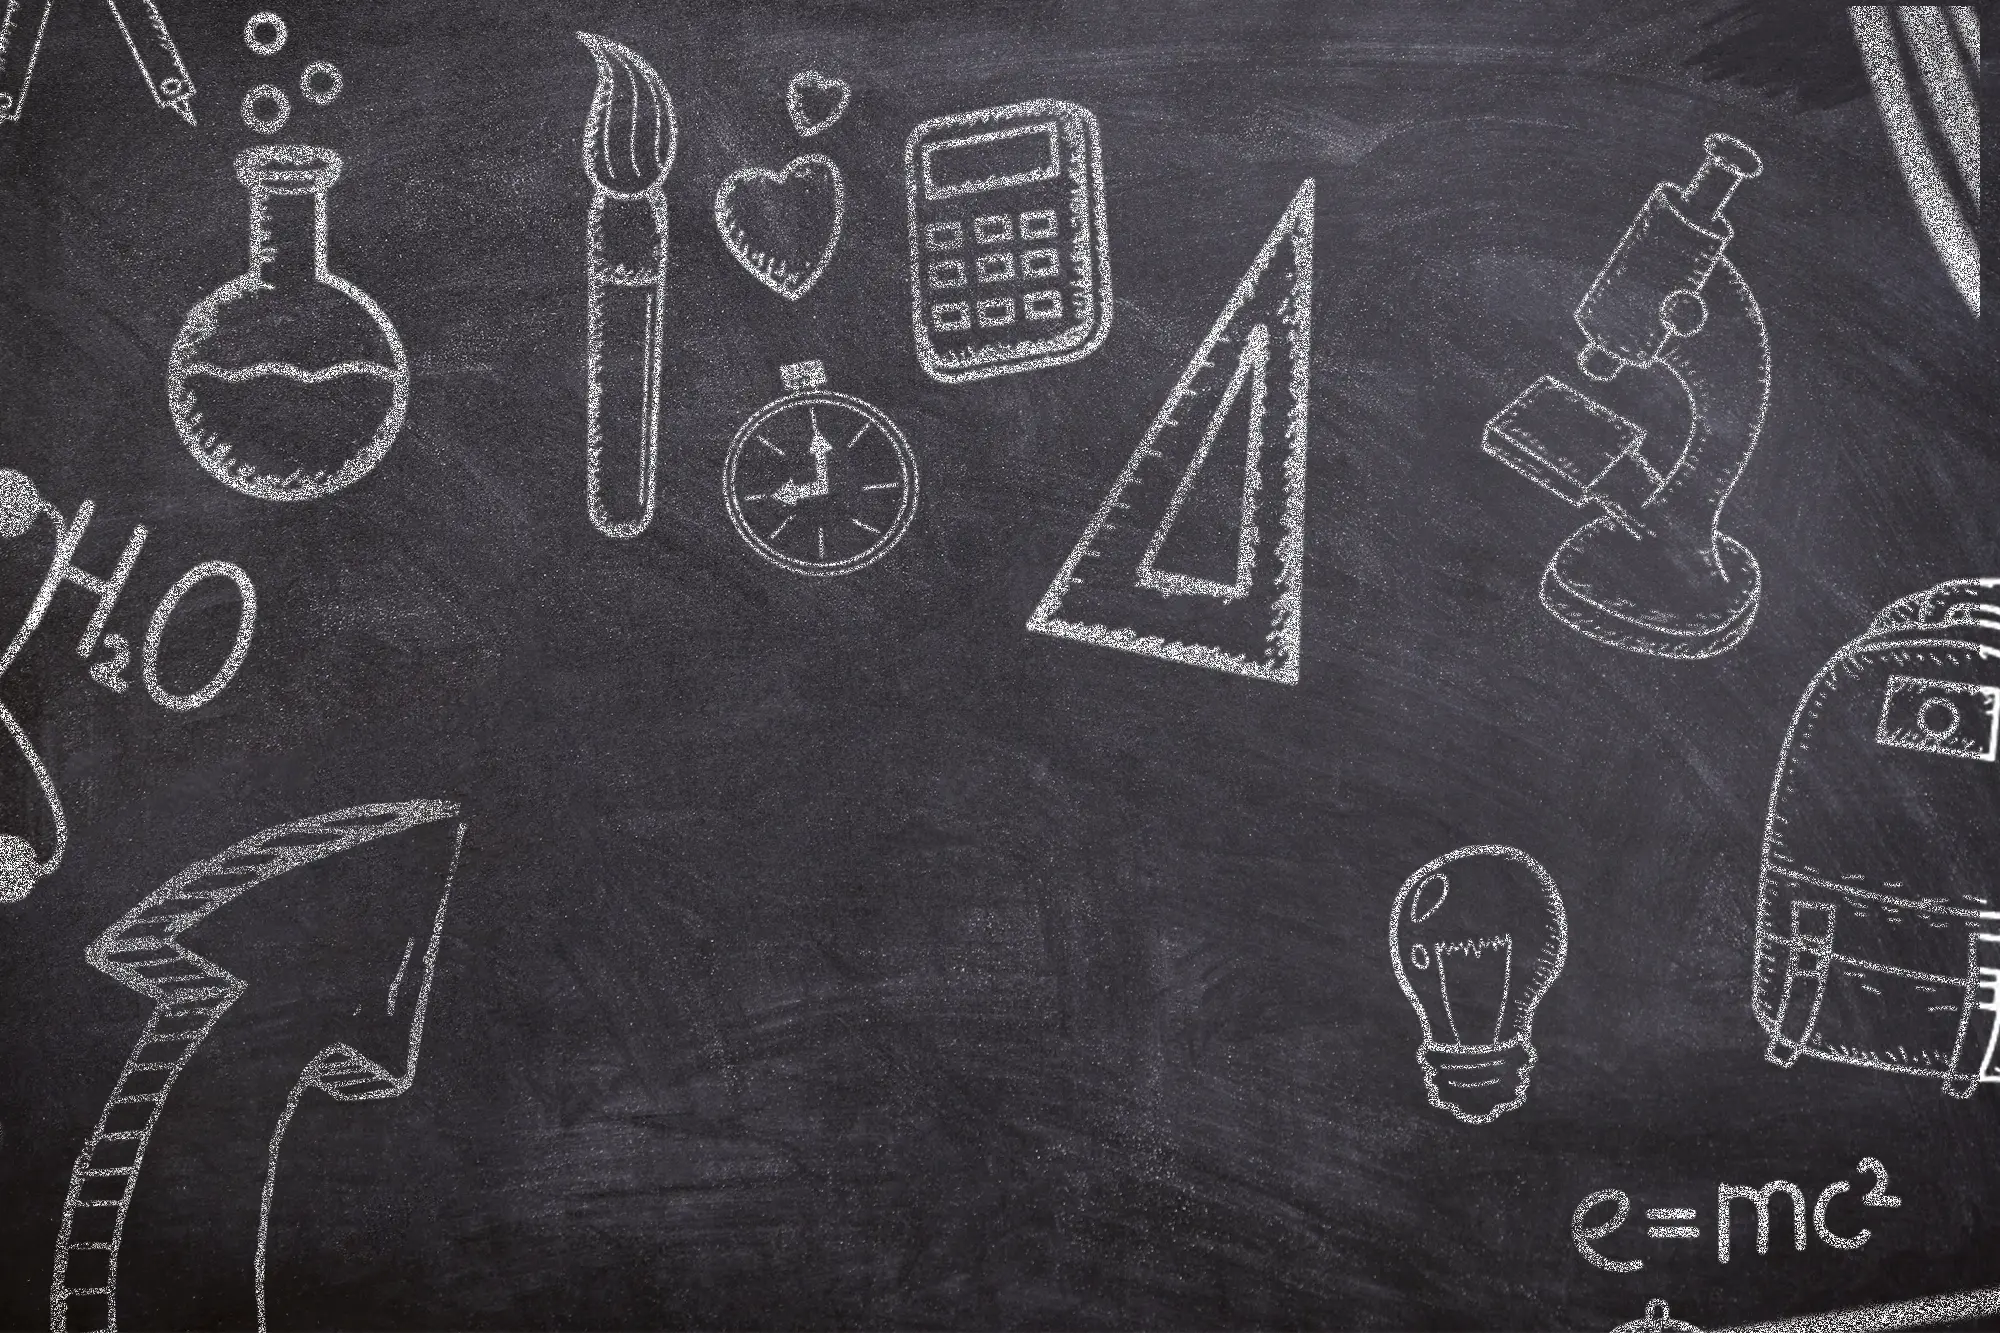 H₂O
e=mc²